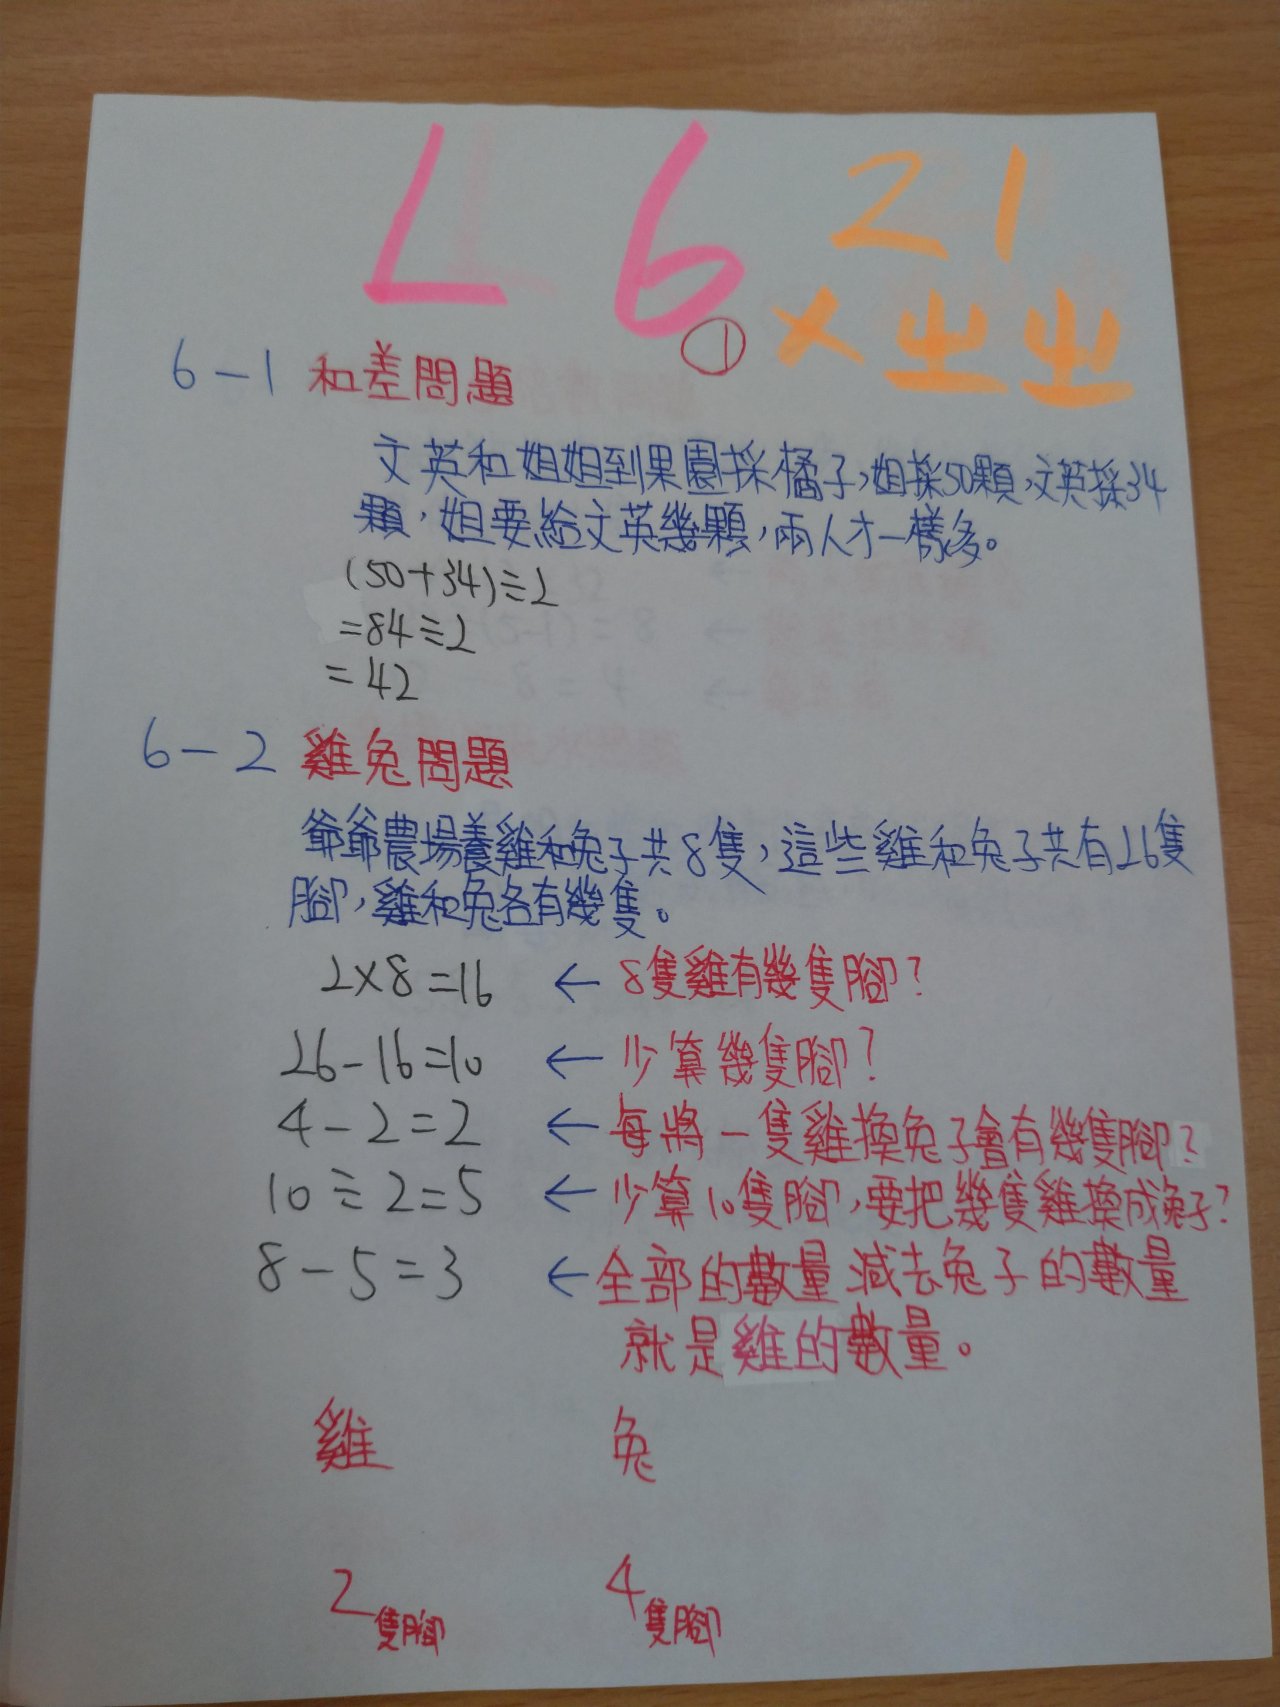 L 6 21
① ㄨㄓㄓ
6-1 和差問題
文英和姐姐到果園採橘子,姐採50顆,文英採34
顆,姐要給文英幾顆,兩人才一樣多。
(50+34)÷2
=84÷2
=42
6-2 雞兔問題
爺爺農場養雞和兔子共8隻,這些雞和兔子共有26隻
腳,雞和兔各有幾隻。
2×8=16 ← 8隻雞有幾隻腳?
26-16=10 ← 少算幾隻腳?
4-2=2 ← 每將一隻雞換兔子會有幾隻腳?
10÷2=5 ← 少算10隻腳,要把幾隻雞換成兔子?
8-5=3 ← 全部的數量減去兔子的數量
就是雞的數量。
雞 兔
2隻腳 4隻腳